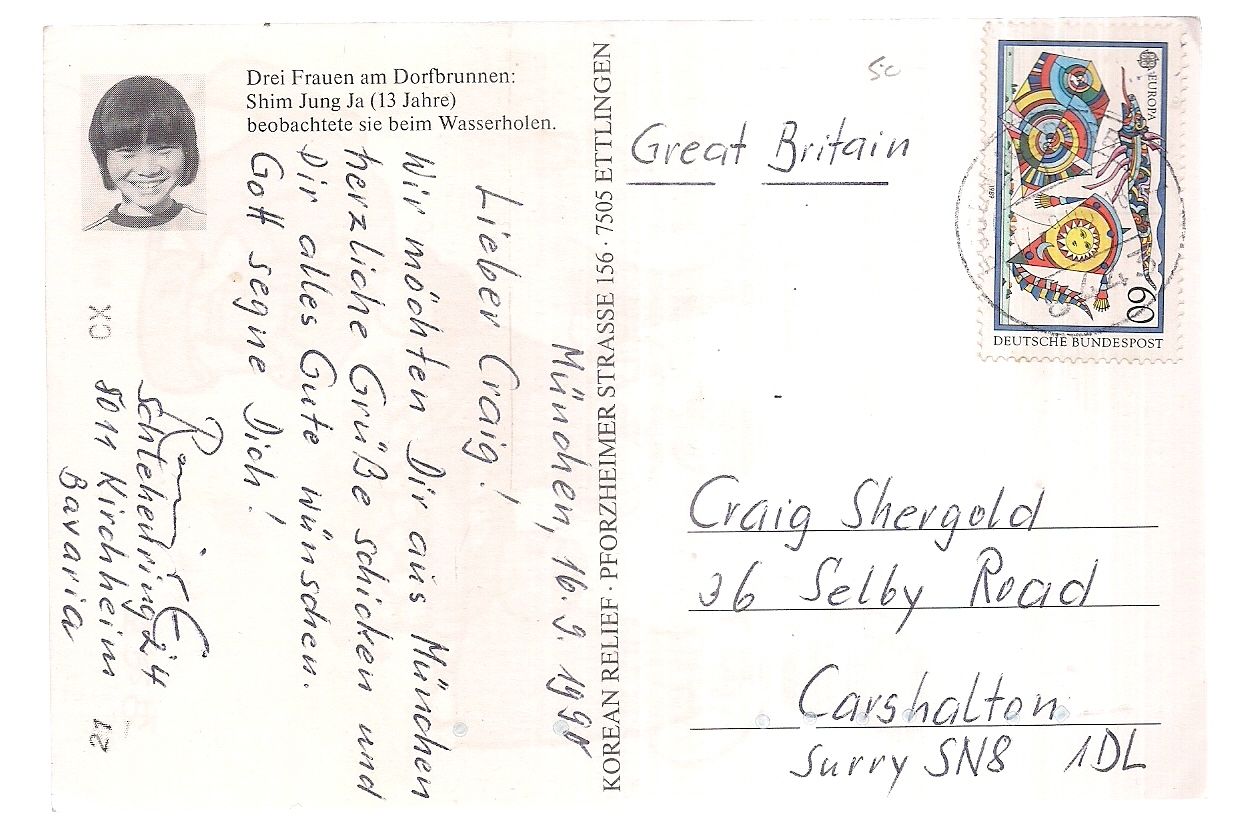 Drei Frauen am Dorfbrunnen:
Shim Jung Ja (13 Jahre)
beobachtete sie beim Wasserholen.
München, 16. 9. 1990
Lieber Craig!
Wir möchten Dir aus München
herzliche Grüße schicken und
Dir alles Gute wünschen.
Gott segne Dich!
Schlehenring 24
8011 Kirchheim
Bavaria
XO
21
KOREAN RELIEF · PFORZHEIMER STRASSE 156 · 7505 ETTLINGEN
5c
Great Britain
EUROPA
1989
60
DEUTSCHE BUNDESPOST
Craig Shergold
36 Selby Road
Carshalton
Surry SN8 1DL